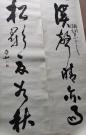 溪声晴亦雨
松影夏如秋